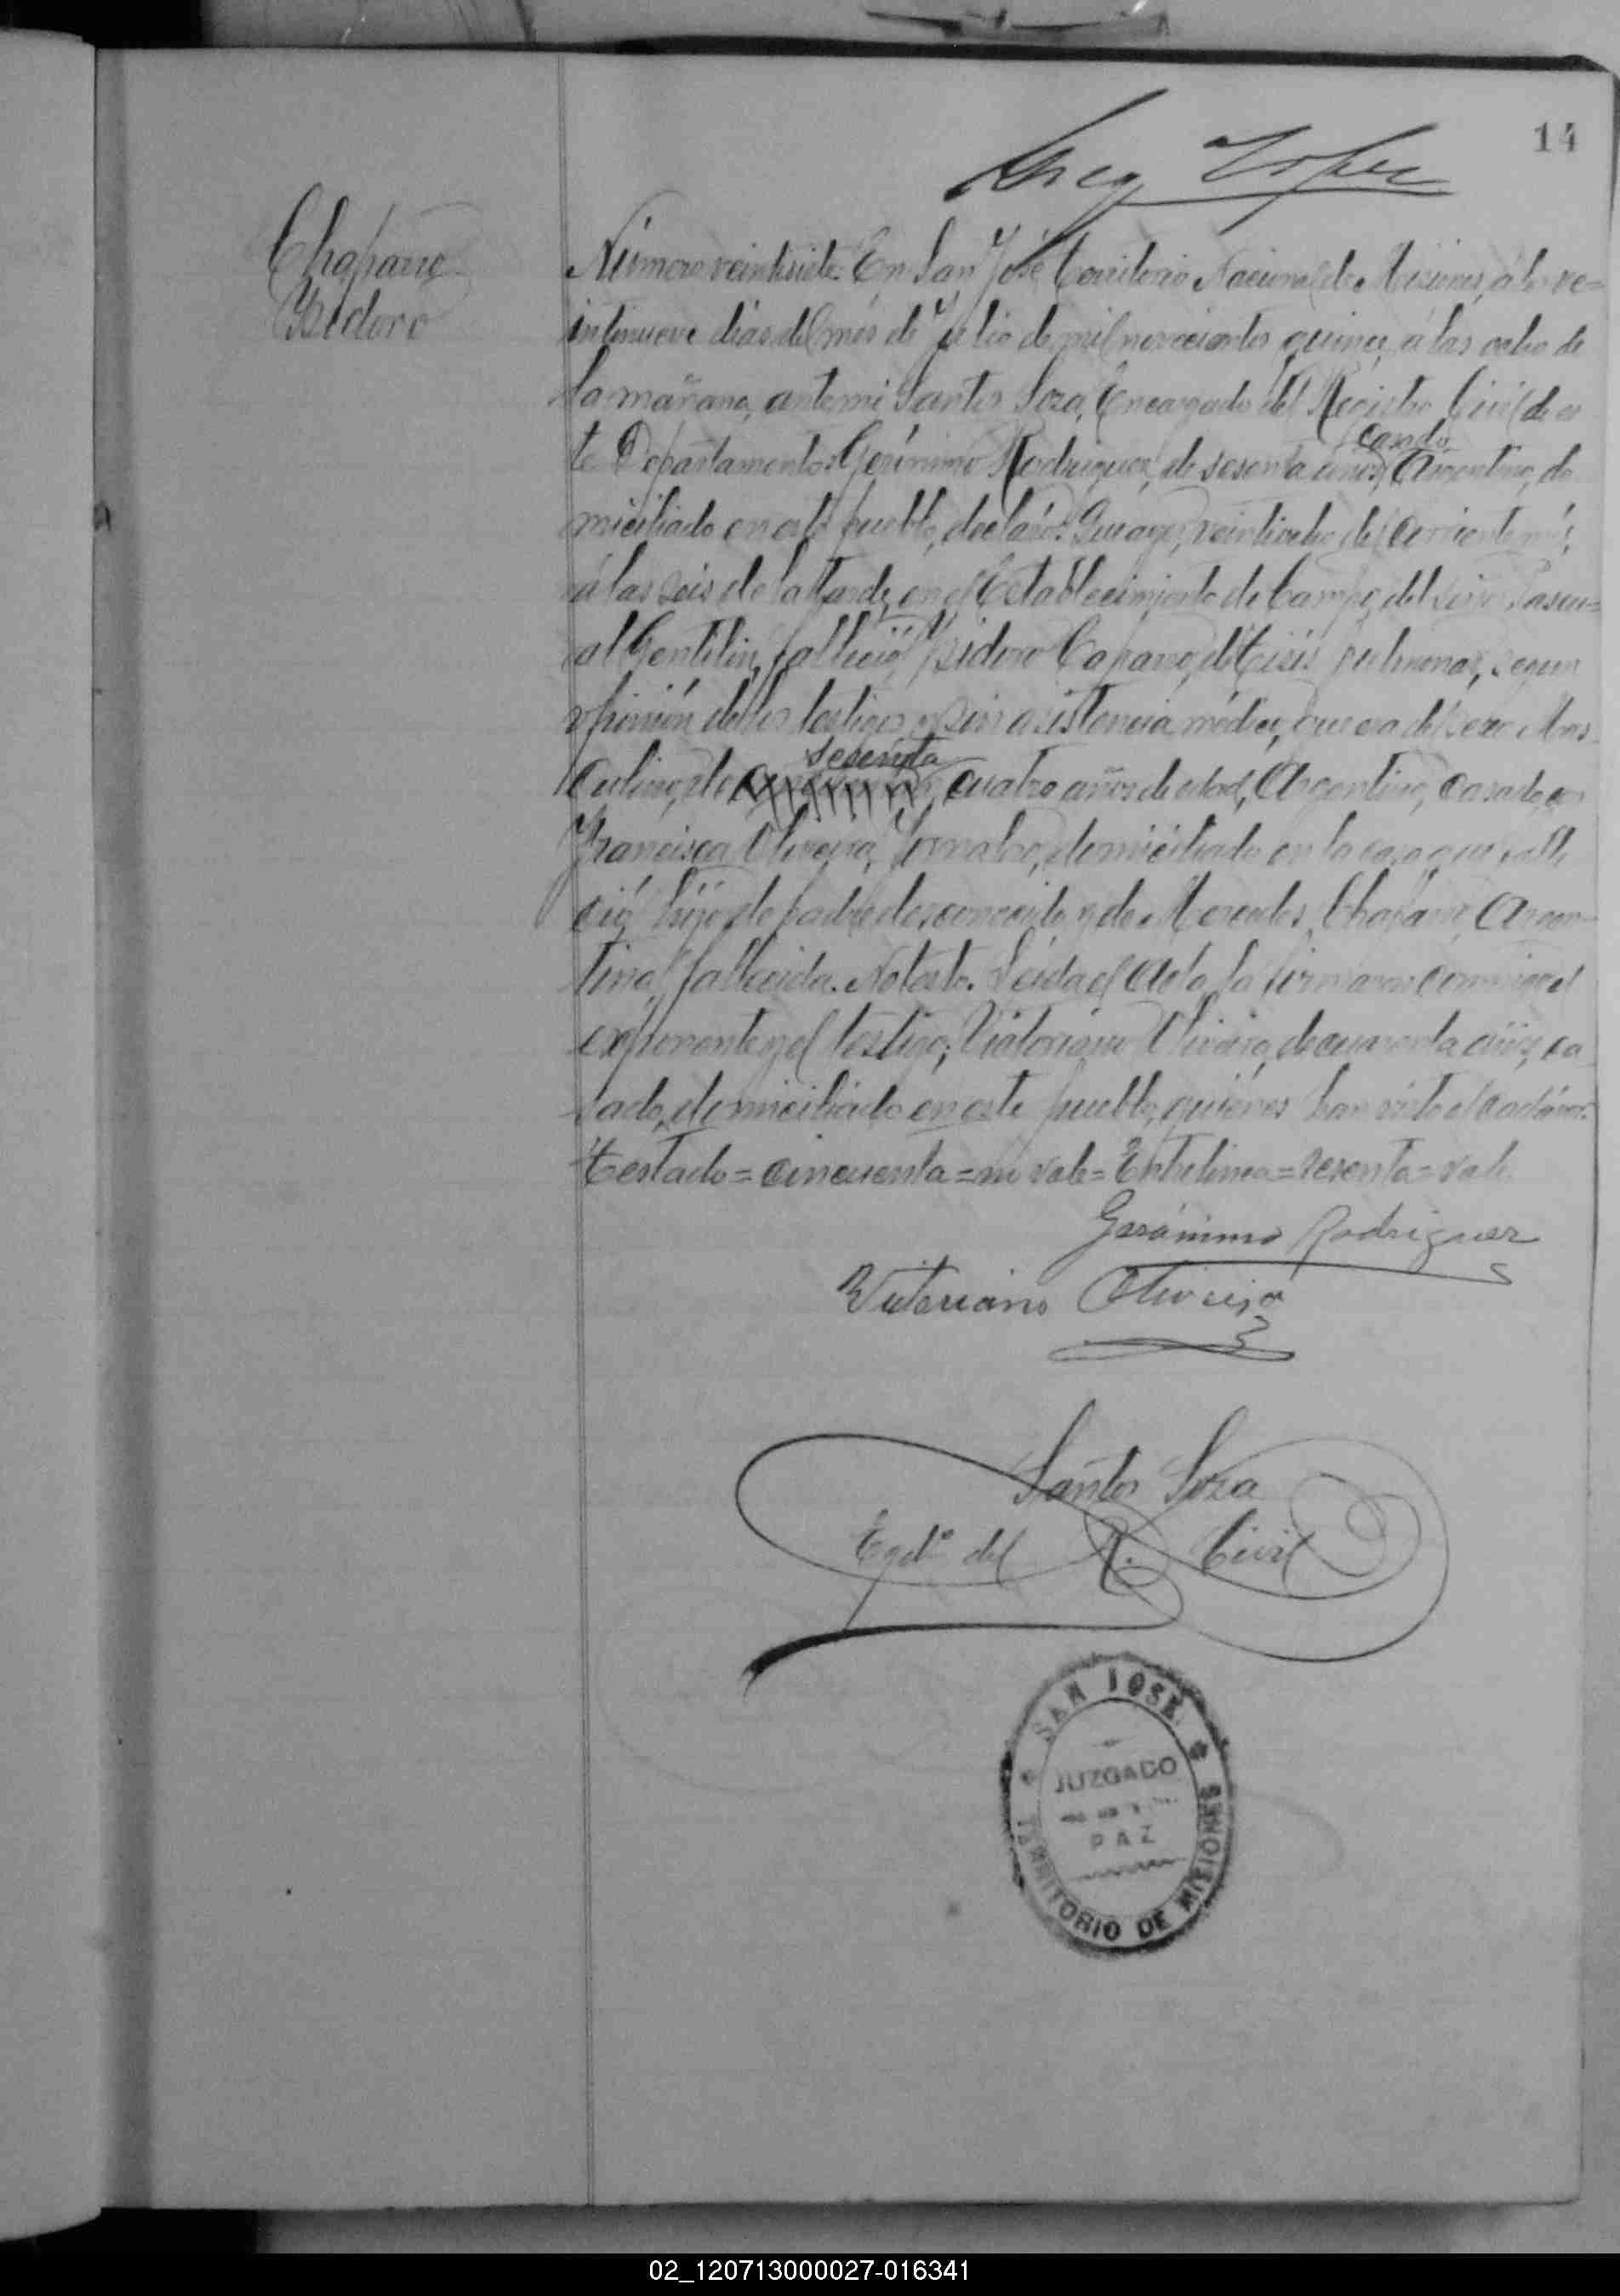 14
Chaparro
Ysidoro
Número veintisiete: En San José Territorio Nacional de Misiones, á los ve=
intinueve dias del més de Julio de mil novecientos quince, á las ocho de
la mañana, ante mi Santos Soza, Encargado del Registro Civil de es
casado
te Departamento: Gerónimo Rodriguez, de sesenta años, Argentino, do
miciliado en este pueblo, declaró: Que ayer, veintiocho del corriente més,
á las seis de la tarde, en el Establecimiento de Campo, del Pascu=
al Gentilin, falleció Ysidoro Caparro, de tisis pulmonar, segun
opinión de los testigos y sin asistencia médica, que era del sexo Mas
sesenta
culino, de cuatro años de edad, Argentino, casado con
Francisca Oliveira, Jornalero, domiciliado en la casa que falle
ció, hijo de padre desconocido y de Mercedes Chaparro, Argen-
tina, fallecida. No testó. Leida el Acta, la firmaron conmigo el
exponente y el testigo; Victoriano Oliveira, de cuarenta años, ca
sado, domiciliado en este pueblo, quiénes han visto el cadáver.
Testado=cincuenta=no vale=Entrelinea=sesenta=vale
Gerónimo Rodriguez
Vitoriano Oliveira
Santos Soza
Egdº del R. Civil
SAN JOSE
JUZGADO
PAZ
TERRITORIO DE MISIONES
02_120713000027-016341